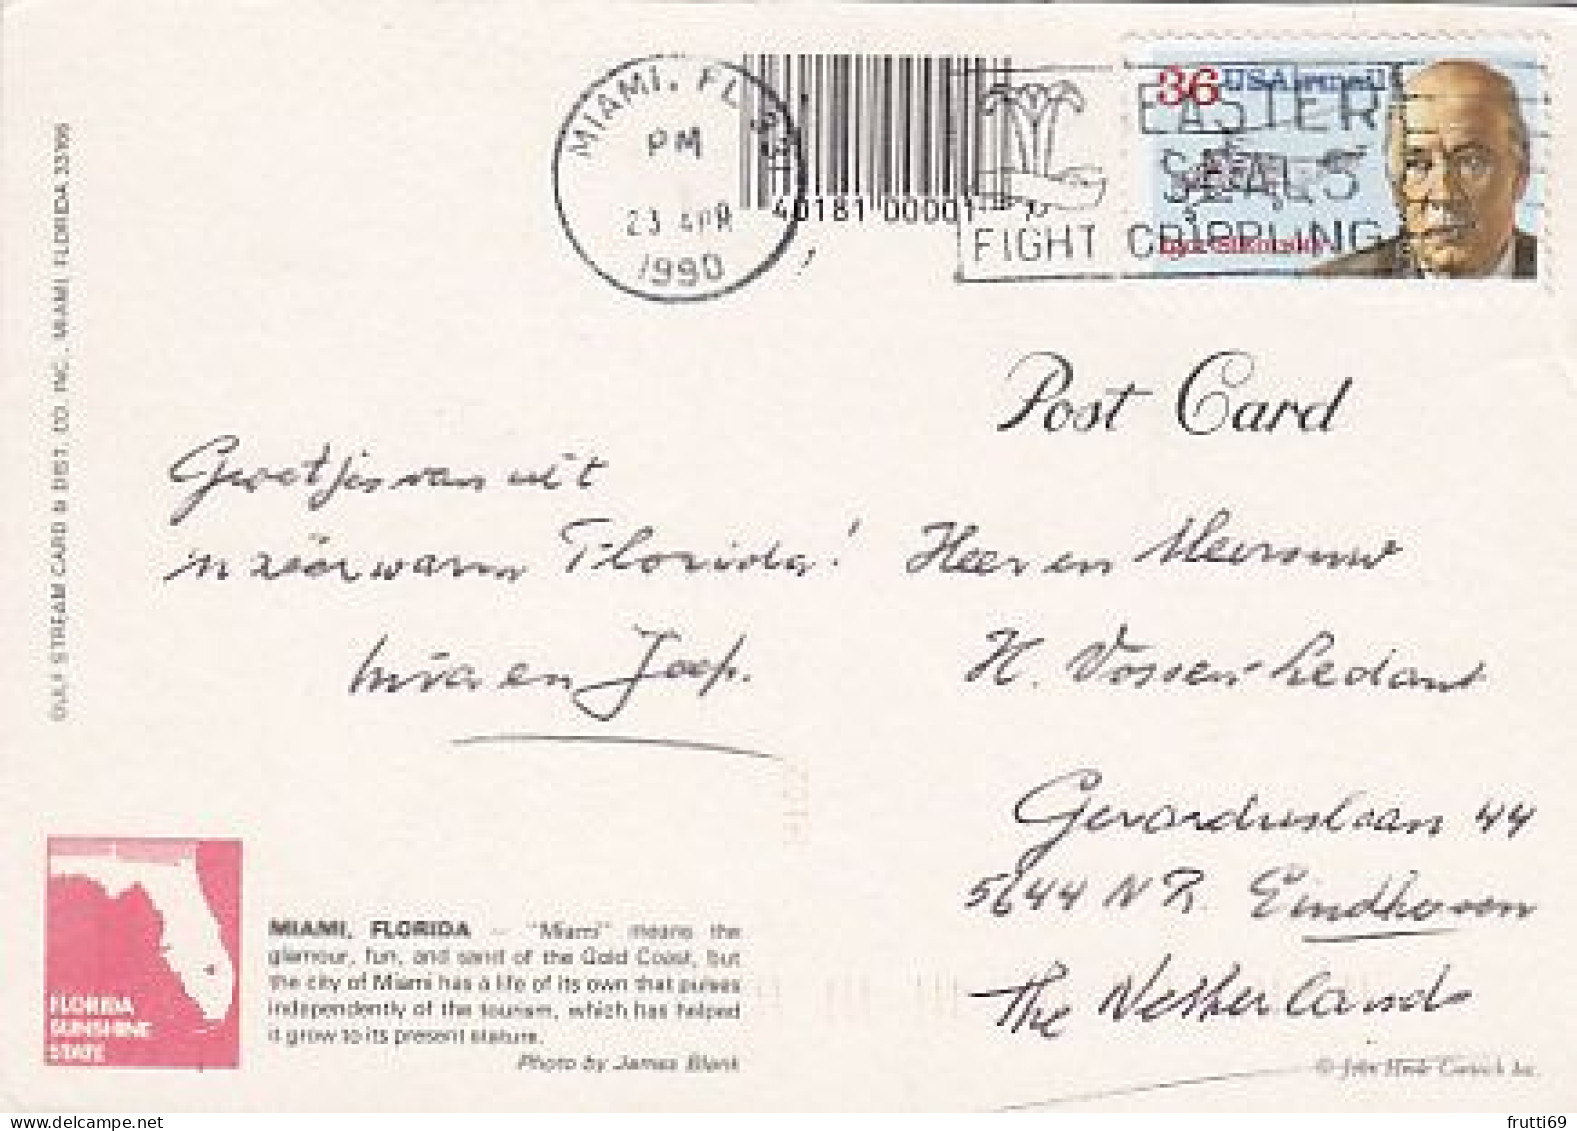 MIAMI, FL 331
PM
23 APR
1990
40181 00001
EASTER
SEALS
FIGHT CRIPPLING
36 USA
Igor Sikorsky
Post Card
Groetjes van uit
'n zéér warm Florida!
en Jaap.
Heer en Mevrouw
H. Vossen-Ledant
Gerarduslaan 44
5644 NR Eindhoven
The Netherlands
GULF STREAM CARD & DIST. CO. INC., MIAMI, FLORIDA 33166
FLORIDA
SUNSHINE
STATE
MIAMI, FLORIDA — "Miami" means the
glamour, fun, and sand of the Gold Coast, but
the city of Miami has a life of its own that pulses
independently of the tourism, which has helped
it grow to its present stature.
Photo by James Blank
© John Hinde Curteich Inc.
frutti69